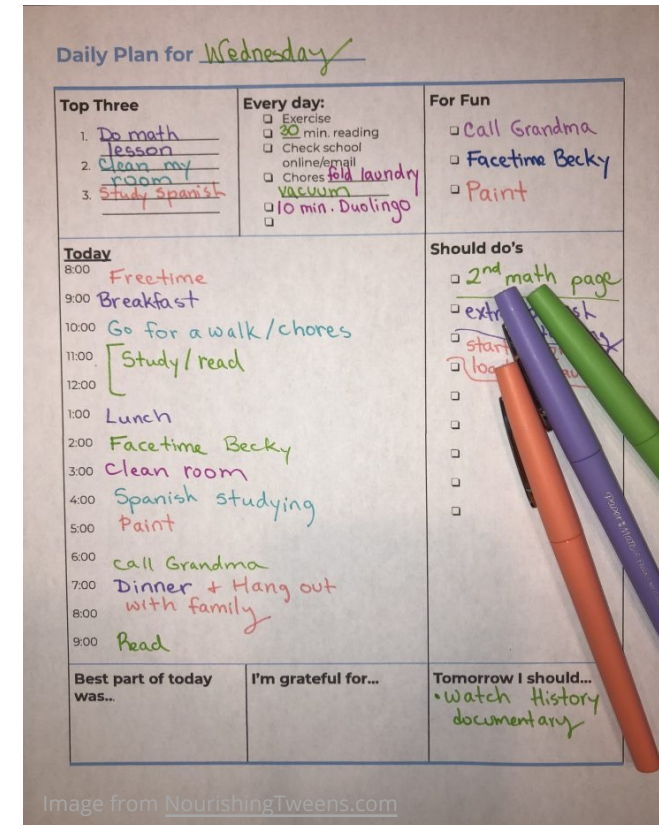 Daily Plan for Wednesday
Top Three
1. Do math
lesson
2. Clean my
room
3. Study Spanish
Every day:
Exercise
30 min. reading
Check school
online/email
Chores fold laundry
vacuum
10 min. Duolingo
For Fun
Call Grandma
Facetime Becky
Paint
Today
8:00 Freetime
9:00 Breakfast
10:00 Go for a walk/chores
11:00 Study/read
12:00
1:00 Lunch
2:00 Facetime Becky
3:00 Clean room
4:00 Spanish studying
5:00 Paint
6:00 call Grandma
7:00 Dinner + Hang out
with family
8:00
9:00 Read
Should do's
2nd math page
start
Best part of today
was..
I'm grateful for...
Tomorrow I should...
•Watch History
documentary
Image from NourishingTweens.com